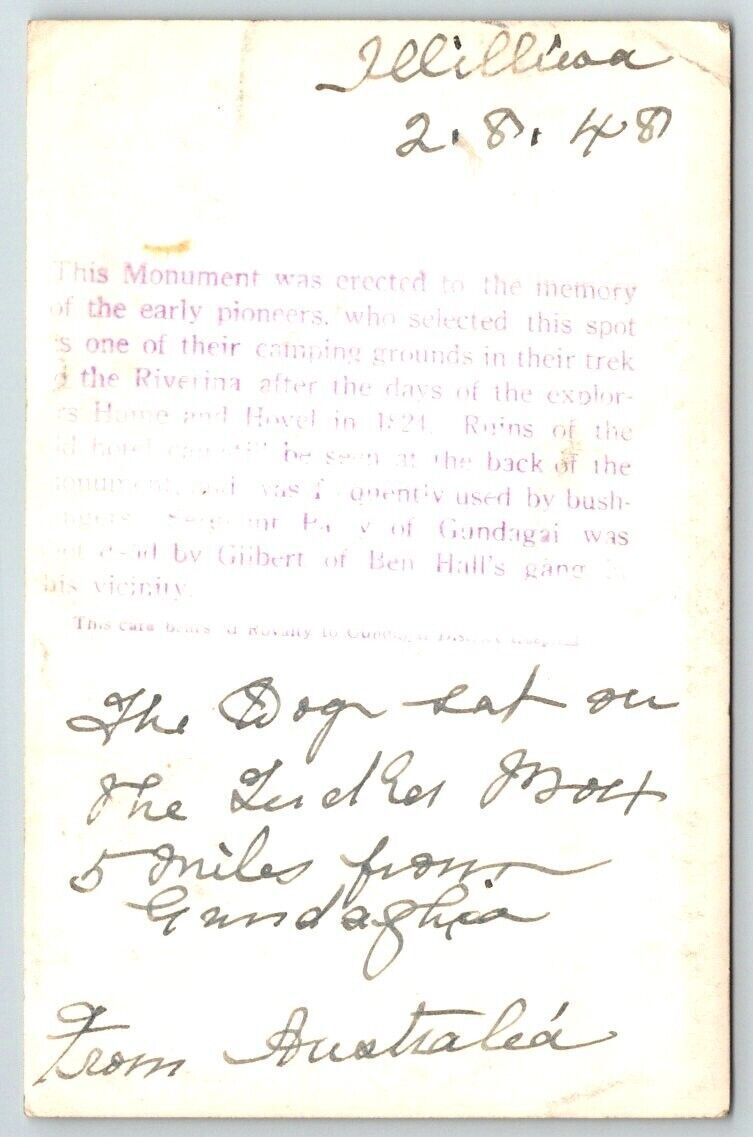 Illilliwa
2.8.48
This Monument was erected to the memory
of the early pioneers, who selected this spot
as one of their camping grounds in their trek
to the Riverina after the days of the explor-
ers Hume and Hovel in 1824. Ruins of the
old hotel can still be seen at the back of the
monument, and was frequently used by bush-
rangers. Sergeant Parry of Gundagai was
shot dead by Gilbert of Ben Hall's gang in
this vicinity.
This card bears a Royalty to Gundagai District Hospital
The Dog sat on
The Tucker Box
5 miles from
Gundaghia
From Australia